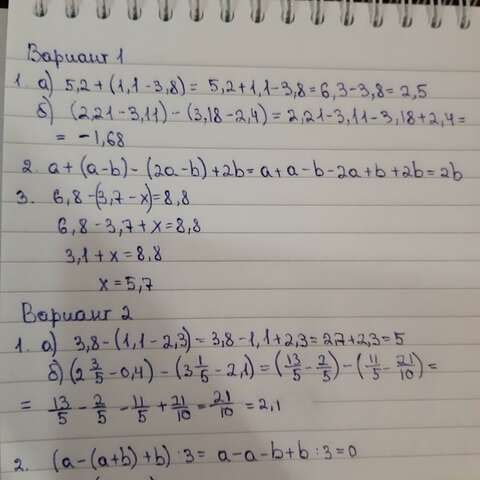 Вариант 1
1. а) 5,2 + (1,1 - 3,8) = 5,2 + 1,1 - 3,8 = 6,3 - 3,8 = 2,5
б) (2,21 - 3,11) - (3,18 - 2,4) = 2,21 - 3,11 - 3,18 + 2,4 =
= -1,68
2. a + (a - b) - (2a - b) + 2b = a + a - b - 2a + b + 2b = 2b
3. 6,8 - (3,7 - x) = 8,8
6,8 - 3,7 + x = 8,8
3,1 + x = 8,8
x = 5,7
Вариант 2
1. а) 3,8 - (1,1 - 2,3) = 3,8 - 1,1 + 2,3 = 27 + 2,3 = 5
б) (2 3/5 - 0,4) - (3 1/5 - 2,1) = (13/5 - 2/5) - (11/5 - 21/10) =
= 13/5 - 2/5 - 11/5 + 21/10 = 21/10 = 2,1
2. (a - (a + b) + b) : 3 = a - a - b + b : 3 = 0